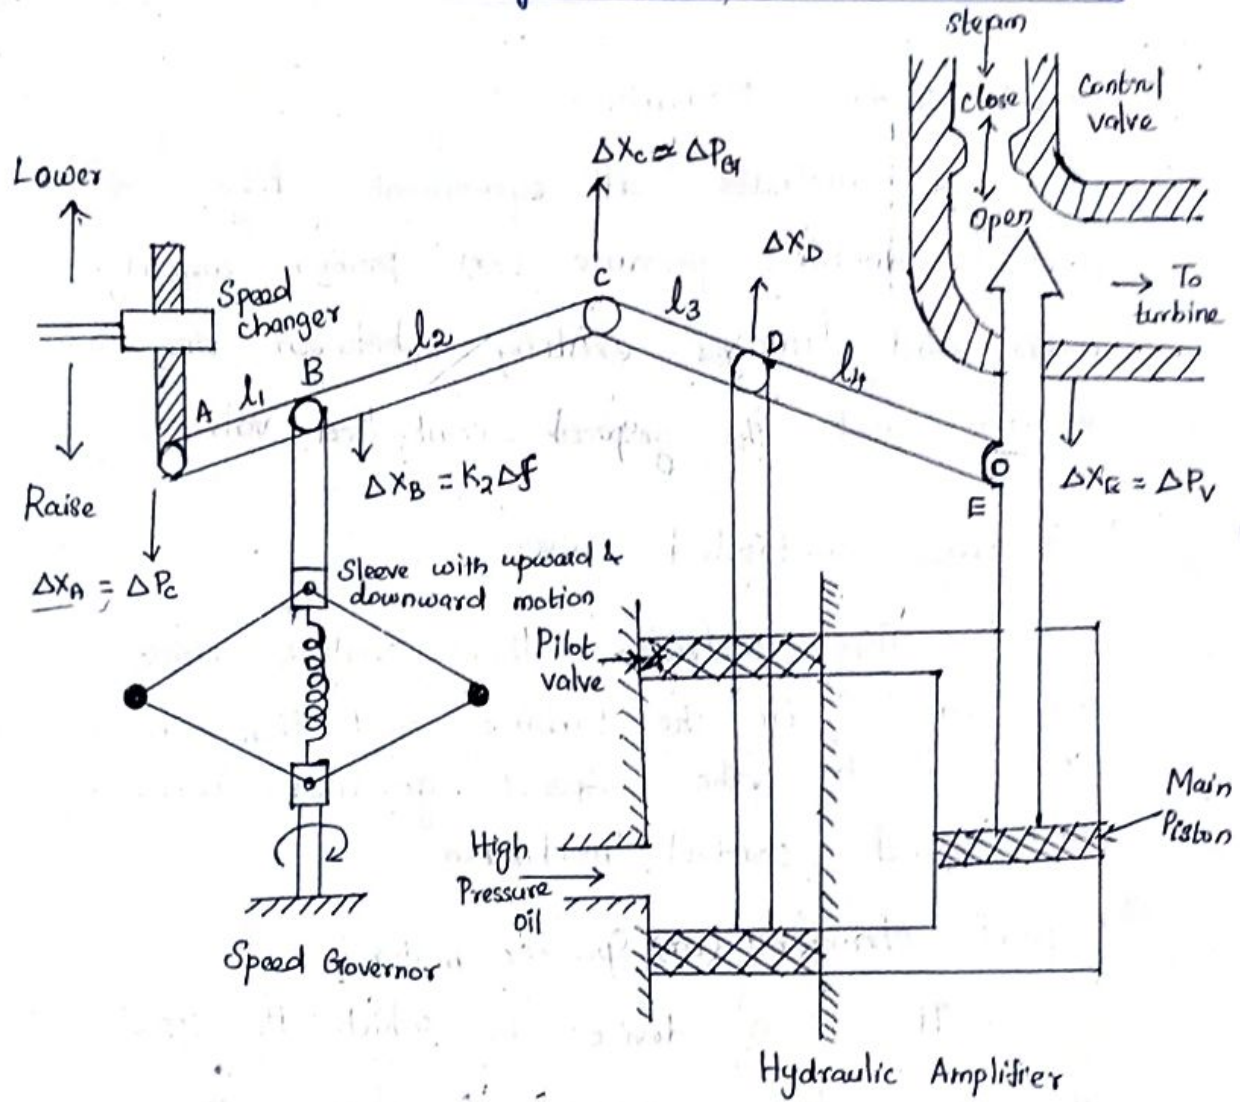 steam
close
Control
valve
Open
→ To
turbine
ΔXc ≃ ΔPG
Lower
Speed
changer
Raise
ΔXA = ΔPc
A
l1
B
l2
C
l3
ΔXD
D
l4
E
ΔXB = K2Δf
ΔXE = ΔPV
Sleeve with upward &
downward motion
Pilot
valve
High
Pressure
oil
Main
Piston
Speed Governor
Hydraulic Amplifier